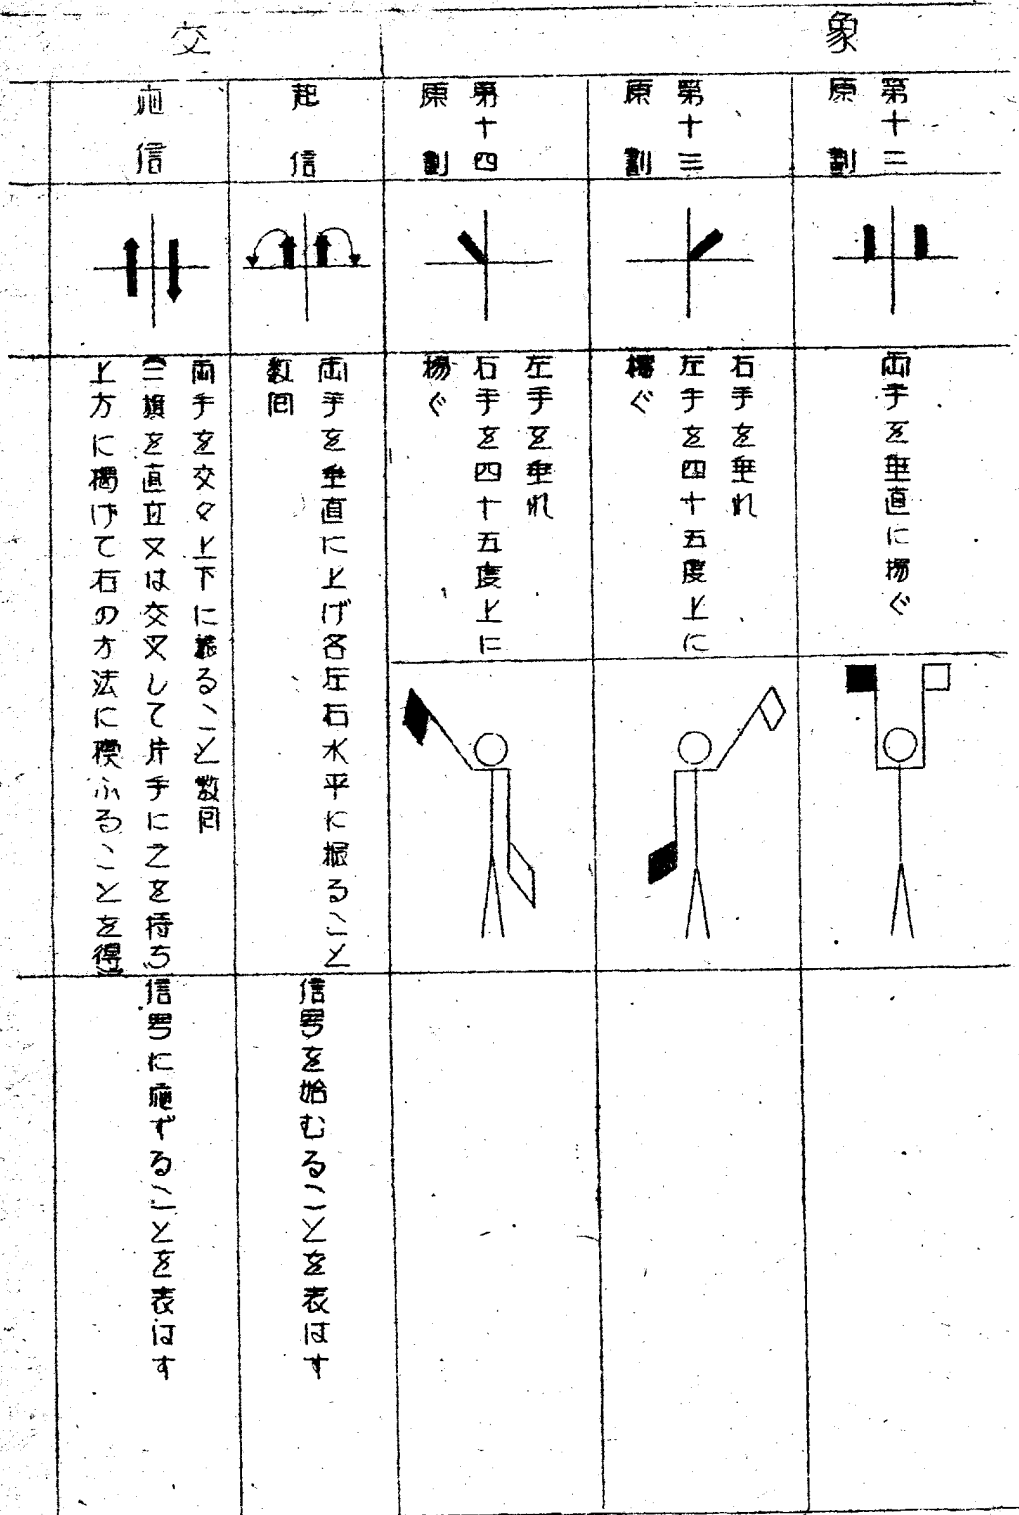 象
第十二
原劃
両手を垂直に揚ぐ
第十三
原劃
右手を垂れ
左手を四十五度上に
揚ぐ
第十四
原劃
左手を垂れ
右手を四十五度上に
揚ぐ
交
起信
両手を垂直に上げ各左右水平に振ること
数回
信号を始むることを表はす
応信
両手を交々上下に振ること数回
(二旗を直立又は交叉して片手に之を持ち
上方に掲げて右の方法に模ふることを得)
信号に応ずることを表はす